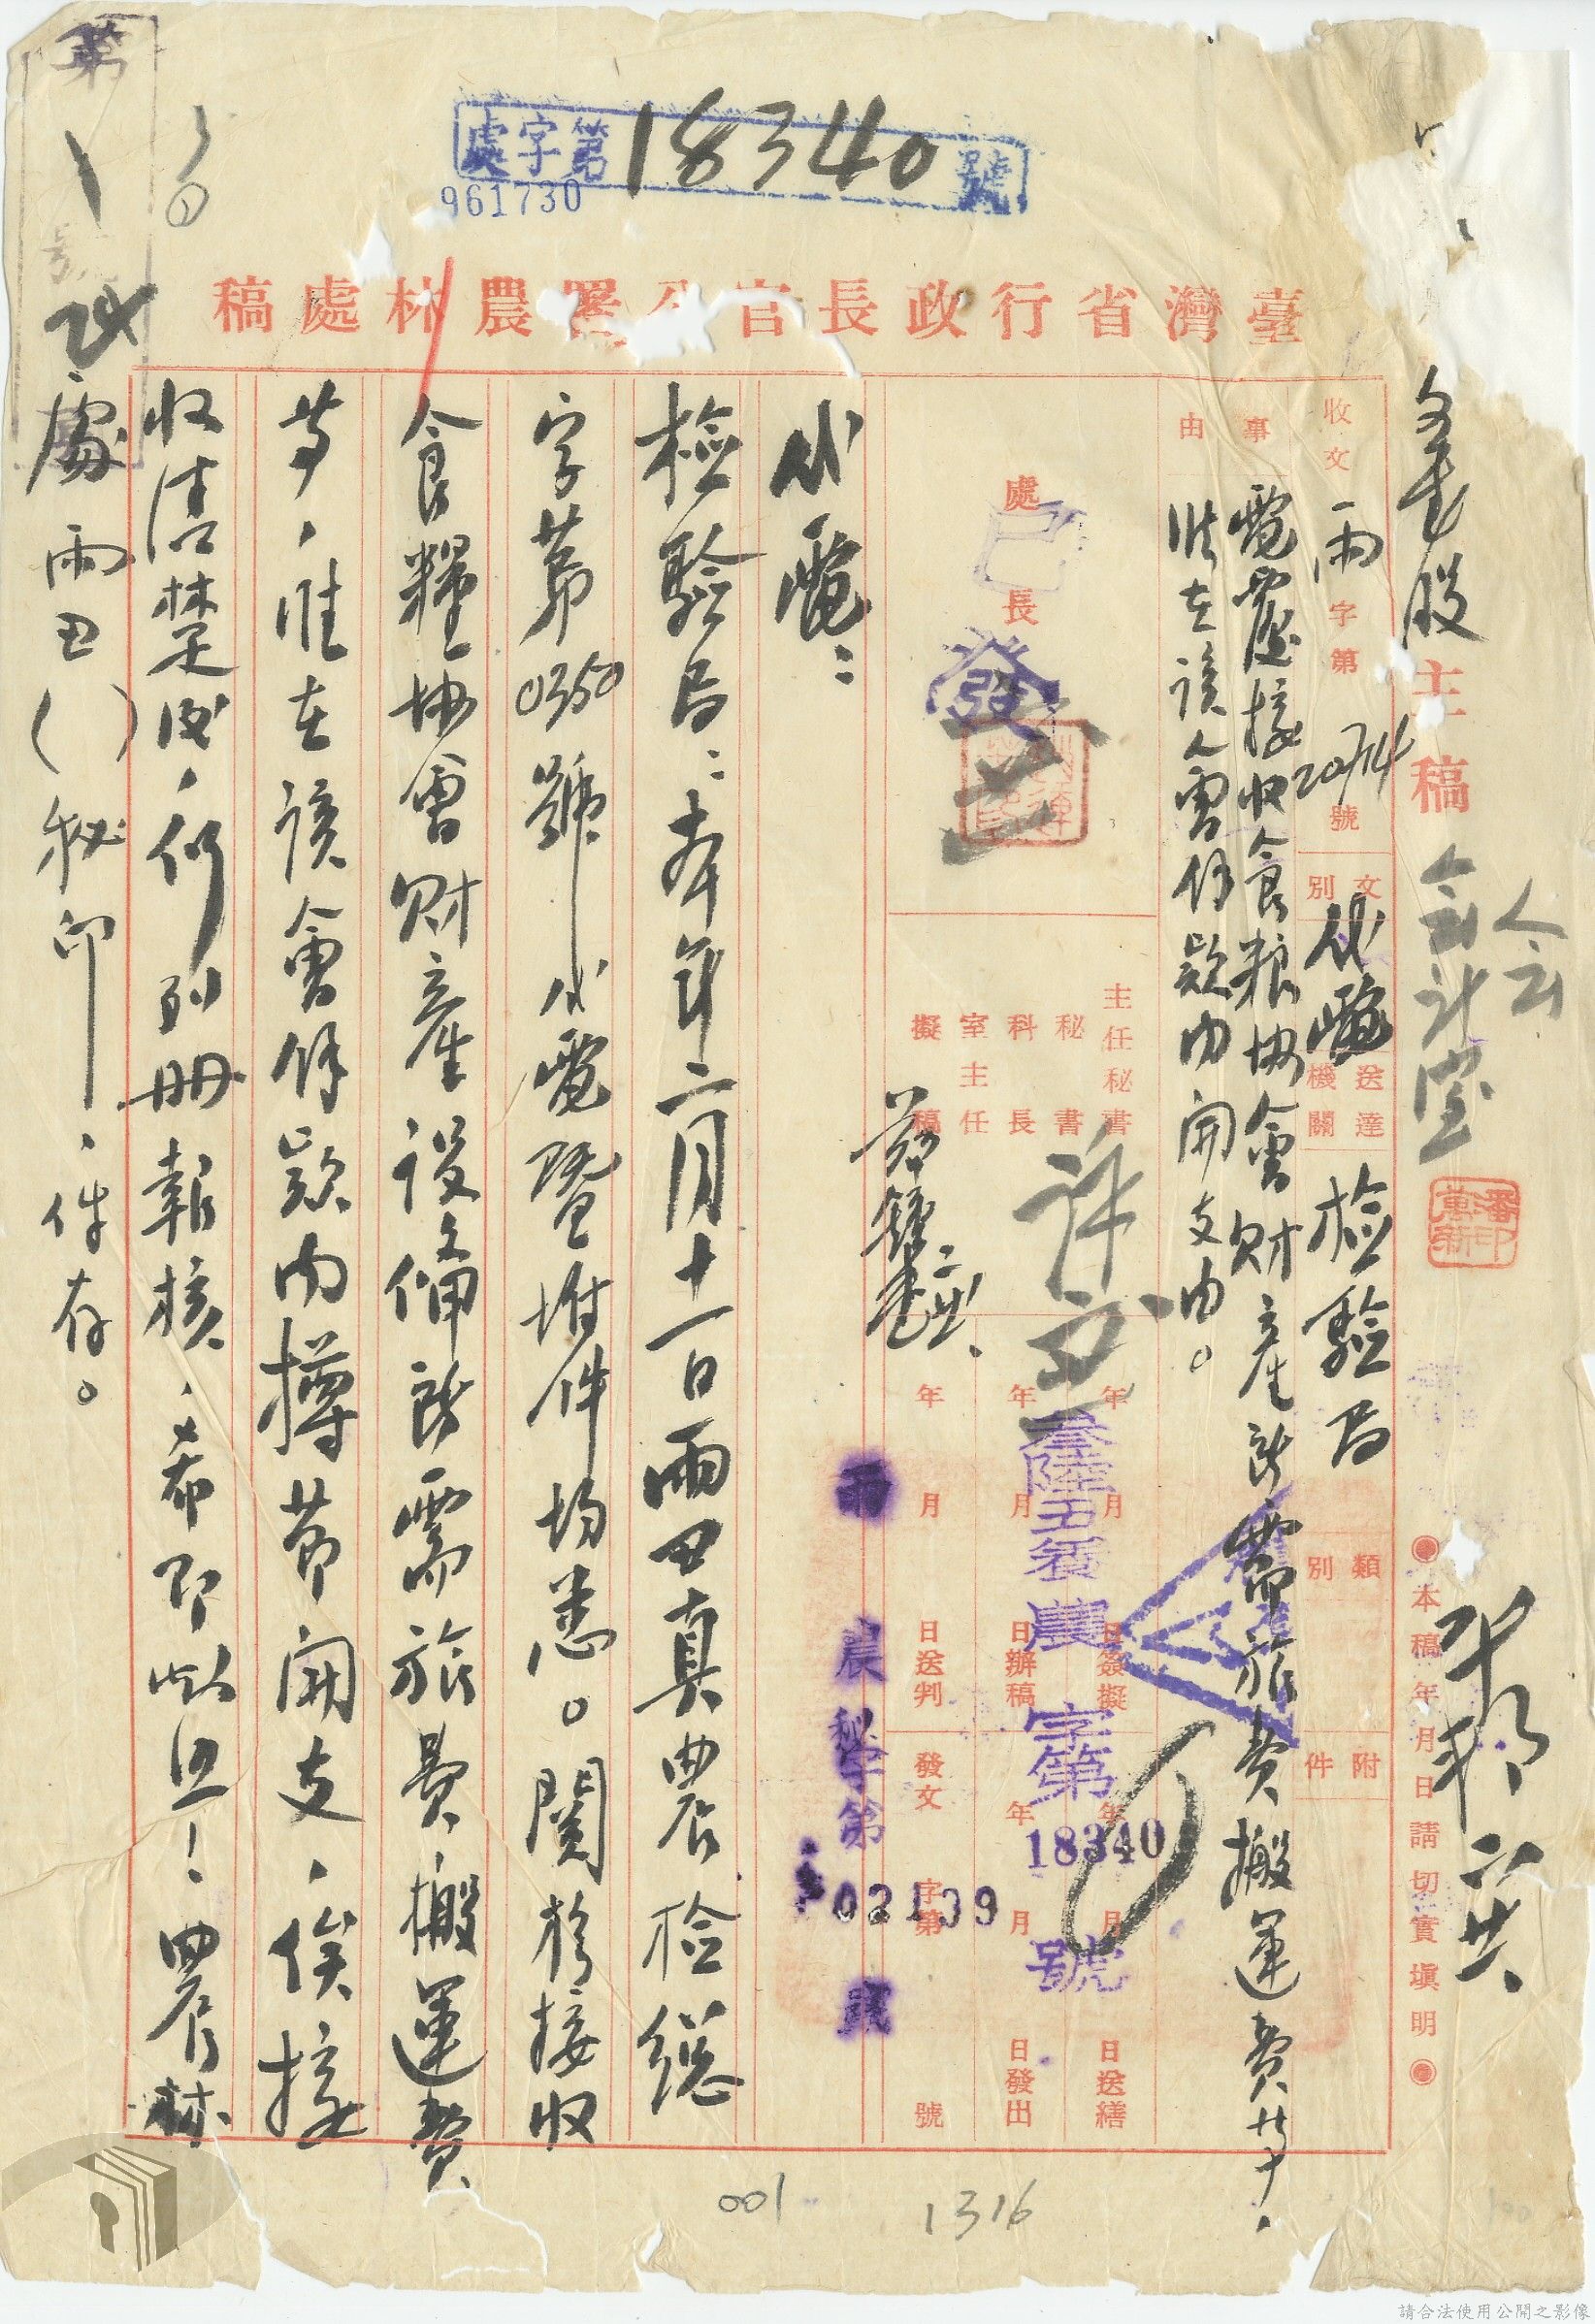 處字第18340號
961730
臺灣省行政長官公署農林處稿
文書股主稿 會計室
會
潘萬新印
●本稿年月日請切實填明●
收文 丙字第20714號
文別 代電
送達機關 檢驗局
類別
附件
事由
電覆接收食粮協會財產所需旅費搬運費等,
准在該會餘款內開支由。
處長
發
主任秘書
秘書
科長
室主任
擬稿
年 月 日簽擬
年 月 日辦稿
年 月 日送判
年 月 日送繕
日發出
發文 字第 號
叁陸丑養農 字第18340號
農秘字第02139號
代電:
檢驗局:本年二月十一日丙丑真農檢總
字第0350號代電暨附件均悉。關於接收
食糧協會財產設備所需旅費,搬運費
等,准在該會餘款內撙節開支,俟接
收清楚後,仍列冊報核,希即知照!農林
處丙丑( )秘印,件存。
001
1316
請合法使用公開之影像